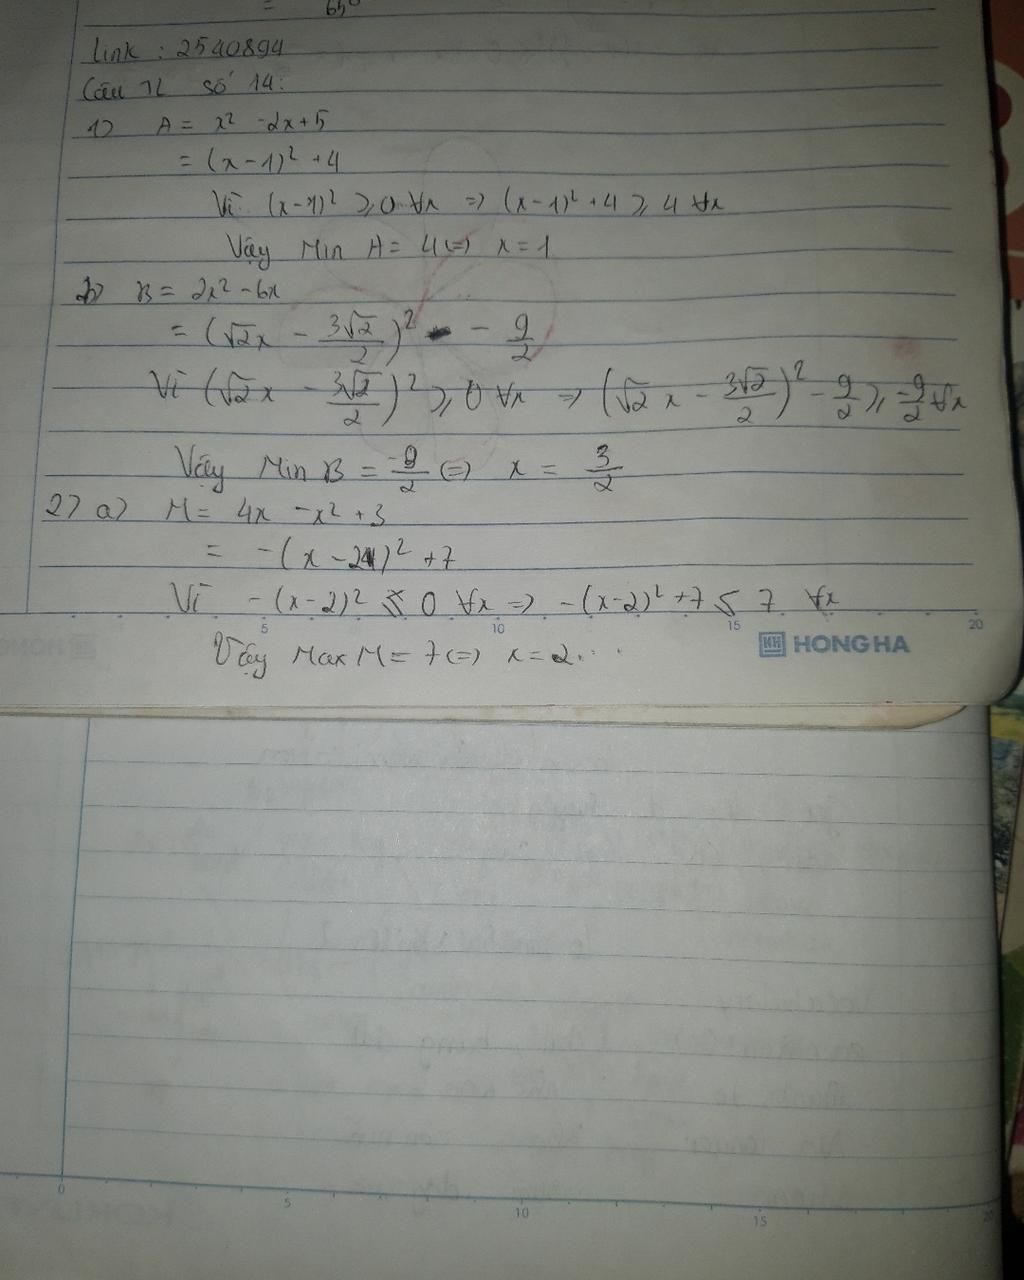 = 650
Link : 2540894
Câu TL số 14:
1) A = x² - 2x + 5
= (x - 1)² + 4
Vì (x - 1)² ≥ 0 ∀x => (x - 1)² + 4 ≥ 4 ∀x
Vậy Min A = 4 <=> x = 1
b) B = 2x² - 6x
= (√2x - 3√2/2)² - 9/2
Vì (√2x - 3√2/2)² ≥ 0 ∀x => (√2x - 3√2/2)² - 9/2 ≥ -9/2 ∀x
Vậy Min B = -9/2 <=> x = 3/2
2) a) M = 4x - x² + 3
= -(x - 2)² + 7
Vì -(x - 2)² ≤ 0 ∀x => -(x - 2)² + 7 ≤ 7 ∀x
5 10 15 20
HONG HA
Vậy Max M = 7 <=> x = 2...
0 5 10 15 20